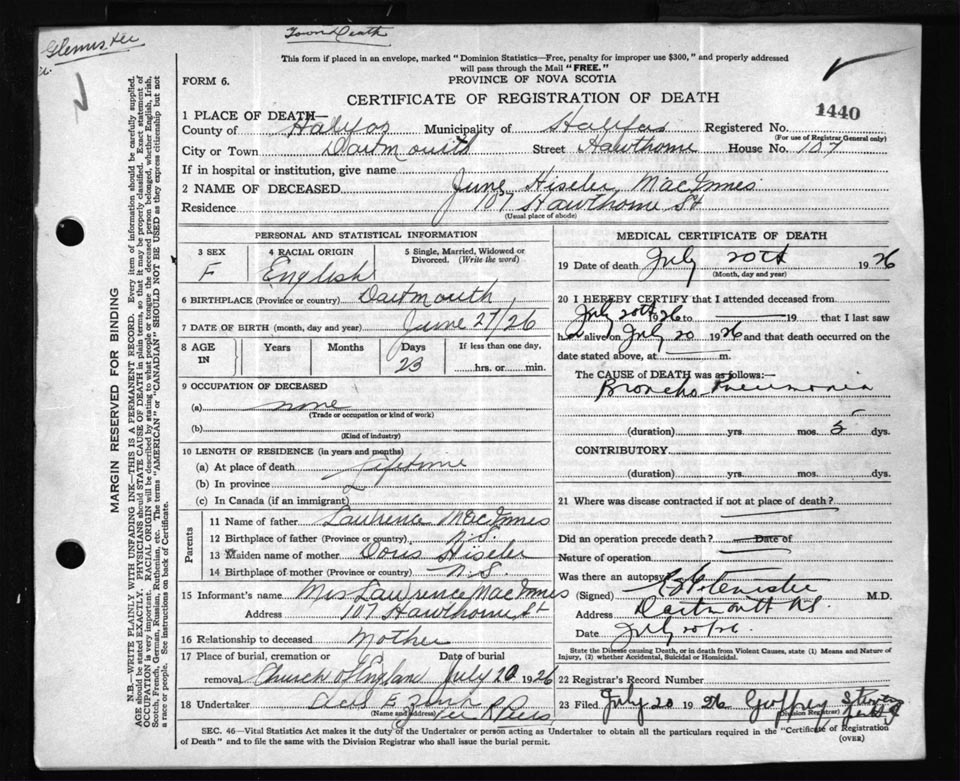 Town Death
This form if placed in an envelope, marked "Dominion Statistics—Free, penalty for improper use $300," and properly addressed
will pass through the Mail "FREE."
FORM 6.
PROVINCE OF NOVA SCOTIA
CERTIFICATE OF REGISTRATION OF DEATH
1440
1 PLACE OF DEATH—
County of Halifax Municipality of Halifax Registered No.
(For use of Registrar General only)
City or Town Dartmouth Street Hawthorne House No. 107
If in hospital or institution, give name
2 NAME OF DECEASED June Hiseler MacInnes
Residence 107 Hawthorne St
(Usual place of abode)
PERSONAL AND STATISTICAL INFORMATION
3 SEX F
4 RACIAL ORIGIN English
5 Single, Married, Widowed or Divorced. (Write the word)
6 BIRTHPLACE (Province or country) Dartmouth
7 DATE OF BIRTH (month, day and year) June 27/26
8 AGE IN Years Months Days 23 If less than one day, hrs. or min.
9 OCCUPATION OF DECEASED
(a) none
(Trade or occupation or kind of work)
(b)
(Kind of industry)
10 LENGTH OF RESIDENCE (in years and months)
(a) At place of death Lifetime
(b) In province
(c) In Canada (if an immigrant)
Parents
11 Name of father Lawrence MacInnes
12 Birthplace of father (Province or country) N.S.
13 Maiden name of mother Doris Hiseler
14 Birthplace of mother (Province or country) N.S.
15 Informant's name Mrs Lawrence MacInnes
Address 107 Hawthorne St
16 Relationship to deceased Mother
17 Place of burial, cremation or removal Church of England Date of burial July 20 1926
18 Undertaker
(Name and address)
MEDICAL CERTIFICATE OF DEATH
19 Date of death July 20th 1926
(Month, day and year)
20 I HEREBY CERTIFY that I attended deceased from
July 20th 1926 to 19 that I last saw
h alive on July 20 1926 and that death occurred on the
date stated above, at m.
The CAUSE of DEATH was as follows:—
Broncho Pneumonia
(duration) yrs. mos. 5 dys.
CONTRIBUTORY
(duration) yrs. mos. dys.
21 Where was disease contracted if not at place of death?
Did an operation precede death? Date of
Nature of operation
Was there an autopsy
(Signed) M.D.
Address Dartmouth N.S.
Date July 20/26
State the Disease causing Death, or in death from Violent Causes, state (1) Means and Nature of Injury, (2) whether Accidental, Suicidal or Homicidal.
22 Registrar's Record Number
23 Filed July 20 1926 Goffrey
(Division Registrar)
SEC. 46—Vital Statistics Act makes it the duty of the Undertaker or person acting as Undertaker to obtain all the particulars required in the "Certificate of Registration
of Death" and to file the same with the Division Registrar who shall issue the burial permit.
(OVER)
MARGIN RESERVED FOR BINDING
N.B.—WRITE PLAINLY WITH UNFADING INK—THIS IS A PERMANENT RECORD. Every item of information should be carefully supplied.
AGE should be stated EXACTLY. PHYSICIANS should STATE CAUSE OF DEATH in plain terms, so that it may be properly classified. Exact statement of
OCCUPATION is very important. RACIAL ORIGIN will be described by stating to what people or tongue the deceased person belonged, whether English, Irish,
Scotch, French, German, Russian, Ruthenian, etc. The terms "AMERICAN" or "CANADIAN" SHOULD NOT BE USED as they express citizenship but not
a race or people. See instructions on back of Certificate.